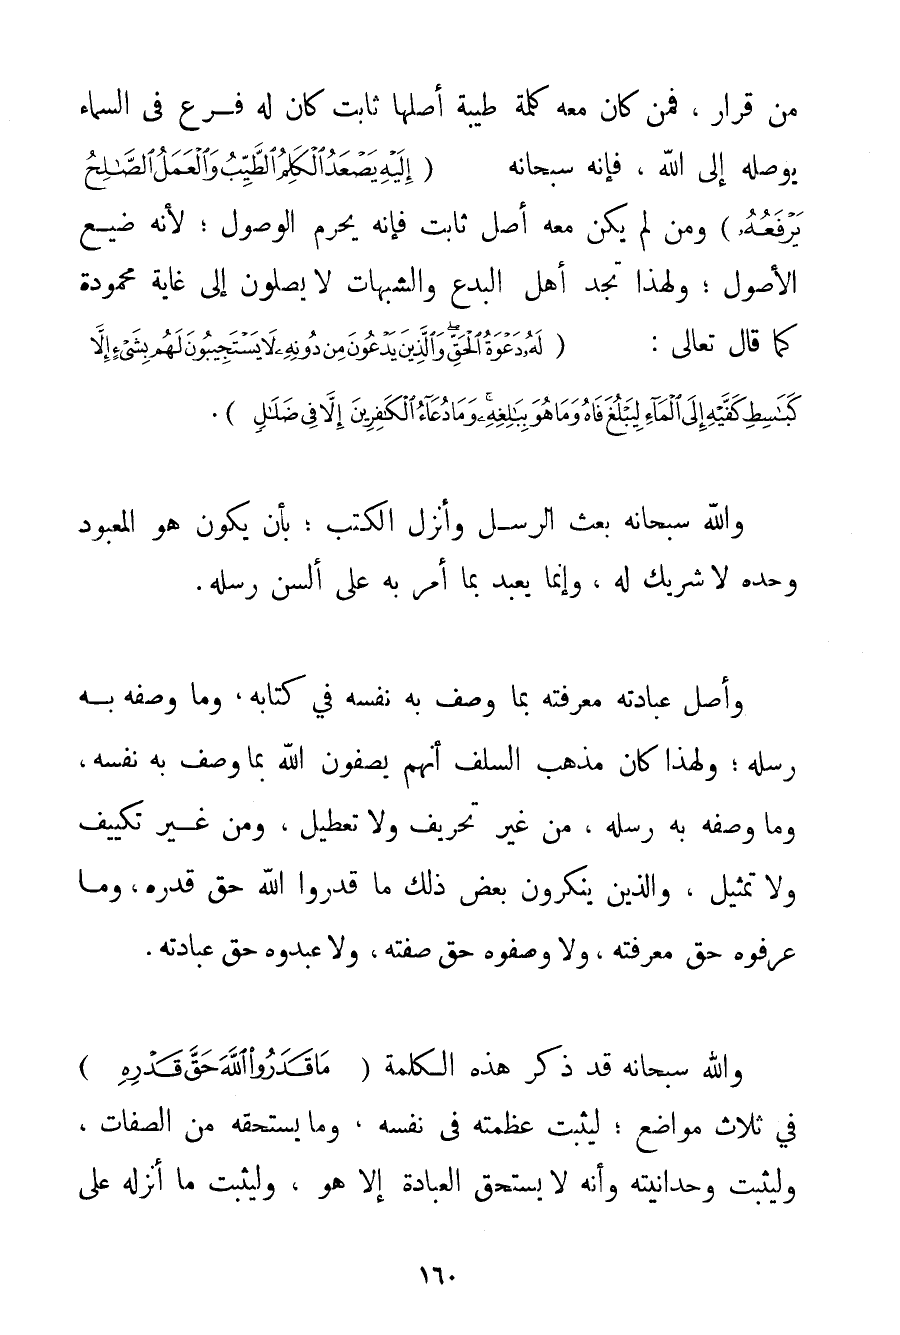 من قرار ، فمن كان معه كلمة طيبة أصلها ثابت كان له فـرع فى السماء
يوصله إلى الله ، فإنه سبحانه ( إِلَيْهِ يَصْعَدُ ٱلْكَلِمُ ٱلطَّيِّبُ وَٱلْعَمَلُ ٱلصَّٰلِحُ
يَرْفَعُهُۥ ) ومن لم يكن معه أصل ثابت فإنه يحرم الوصول ؛ لأنه ضيـع
الأصول ؛ ولهذا تجد أهل البدع والشبهات لا يصلون إلى غاية محمودة
كما قال تعالى : ( لَهُۥ دَعْوَةُ ٱلْحَقِّ ۖ وَٱلَّذِينَ يَدْعُونَ مِن دُونِهِۦ لَا يَسْتَجِيبُونَ لَهُم بِشَىْءٍ إِلَّا
كَبَٰسِطِ كَفَّيْهِ إِلَى ٱلْمَآءِ لِيَبْلُغَ فَاهُ وَمَا هُوَ بِبَٰلِغِهِۦ ۚ وَمَا دُعَآءُ ٱلْكَٰفِرِينَ إِلَّا فِى ضَلَٰلٍ ) .
والله سبحانه بعث الرسـل وأنزل الكتب ؛ بأن يكون هو المعبود
وحده لا شريك له ، وإنما يعبد بما أمر به على ألسن رسله .
وأصل عبادته معرفته بما وصف به نفسه في كتابه ، وما وصفه بـه
رسله ؛ ولهذا كان مذهب السلف أنهم يصفون الله بما وصف به نفسه ،
وما وصفه به رسله ، من غير تحريف ولا تعطيل ، ومن غـير تكييف
ولا تمثيل ، والذين ينكرون بعض ذلك ما قدروا الله حق قدره ، ومـا
عرفوه حق معرفته ، ولا وصفوه حق صفته ، ولا عبدوه حق عبادته .
والله سبحانه قد ذكر هذه الكلمة ( مَا قَدَرُوا۟ ٱللَّهَ حَقَّ قَدْرِهِ )
في ثلاث مواضع ؛ ليثبت عظمته فى نفسه ، وما يستحقه من الصفات ،
وليثبت وحدانيته وأنه لا يستحق العبادة إلا هو ، وليثبت ما أنزله على
١٦٠